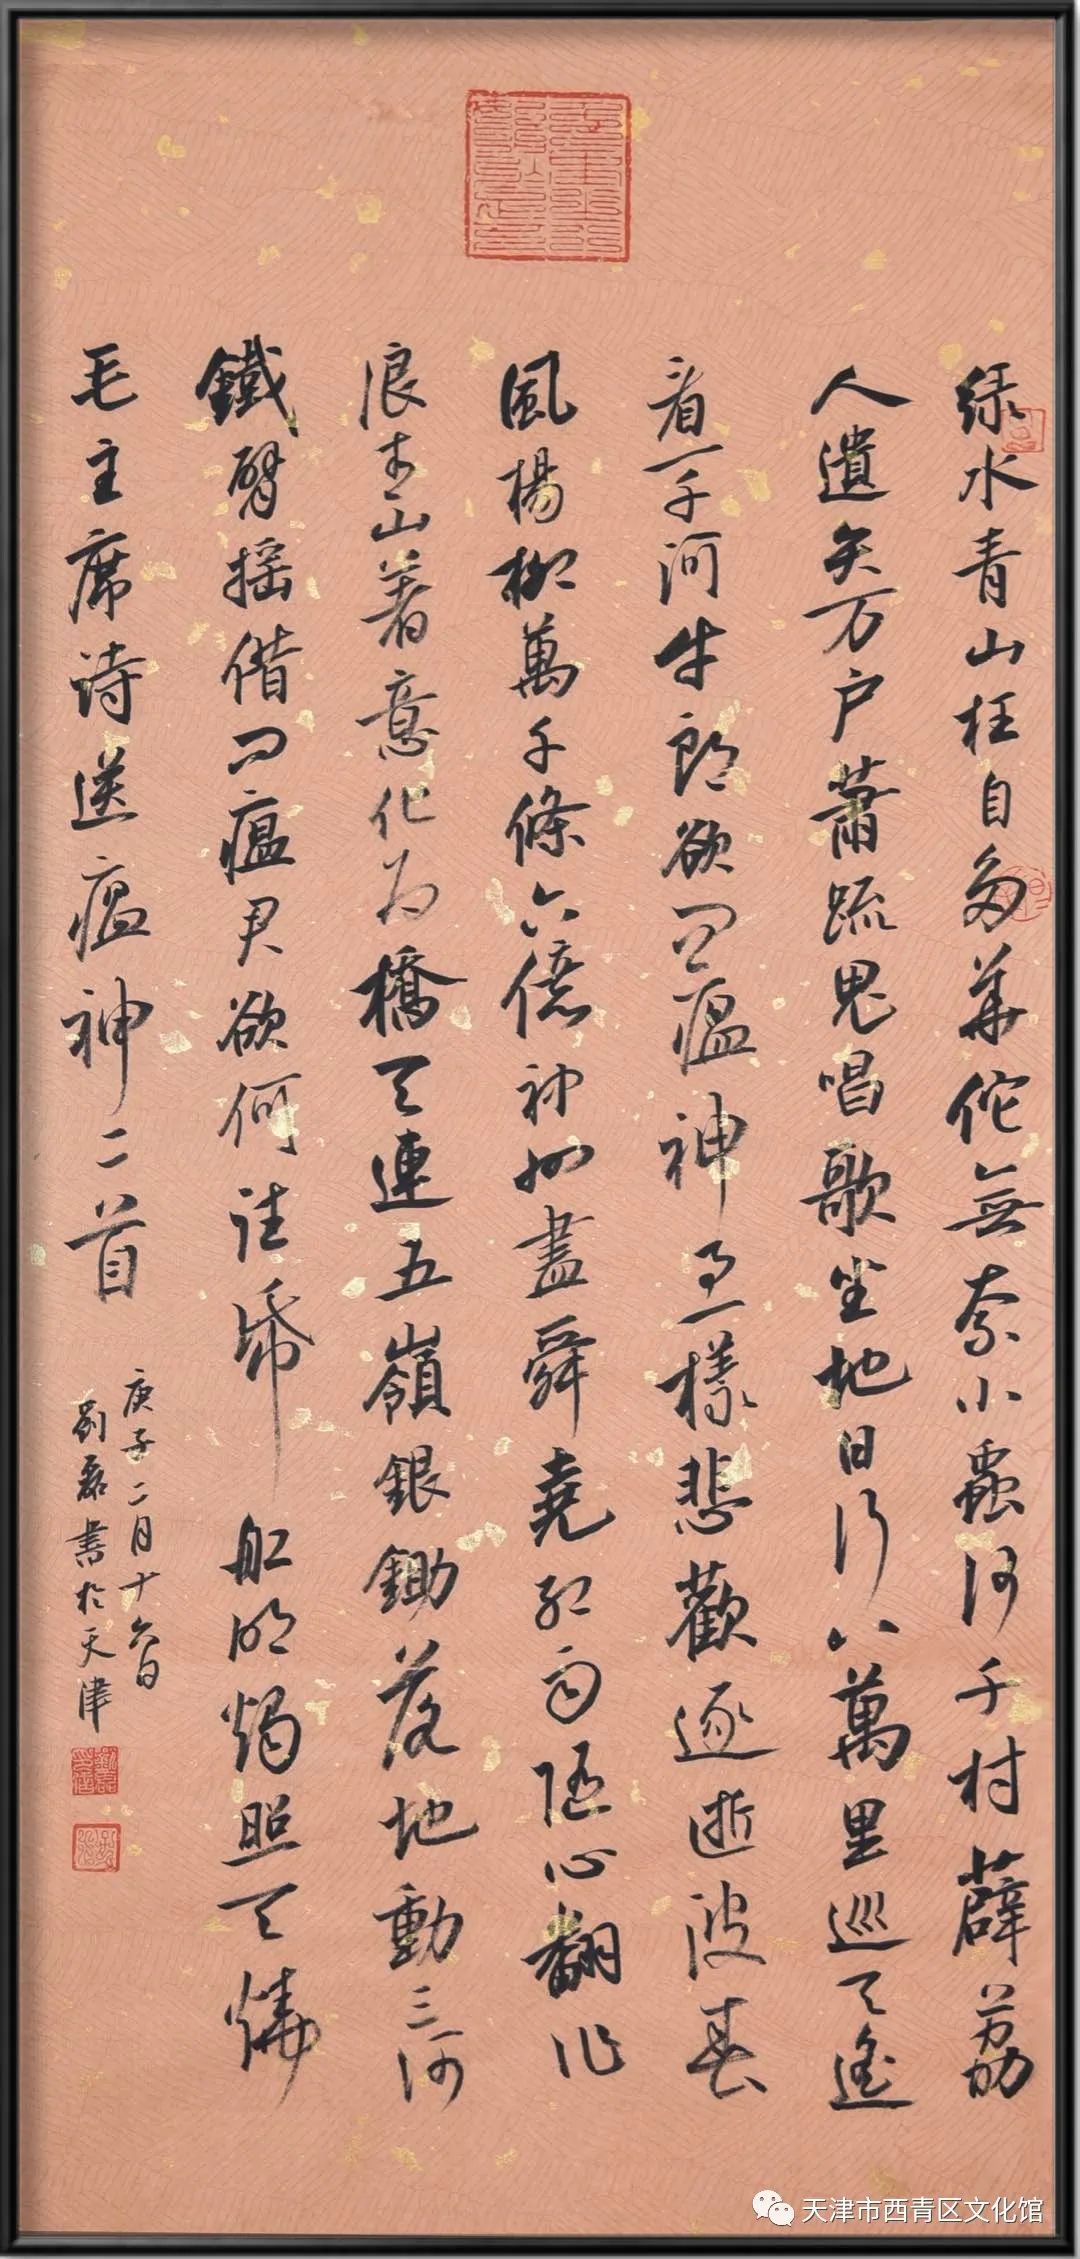 绿水青山枉自多華佗無奈小蟲何千村薜荔
人遺矢万户蕭疏鬼唱歌坐地日行八萬里巡天遥
看一千河牛郎欲问瘟神事一樣悲歡逐逝波春
風楊柳萬千條六億神州盡舜堯红雨随心翻作
浪青山着意化为橋天連五嶺銀鋤落地動三河
鐵臂摇借问瘟君欲何往帋船明燭照天燒
毛主席诗送瘟神二首
庚子二月十六日
劉磊書於天津
天津市西青区文化馆